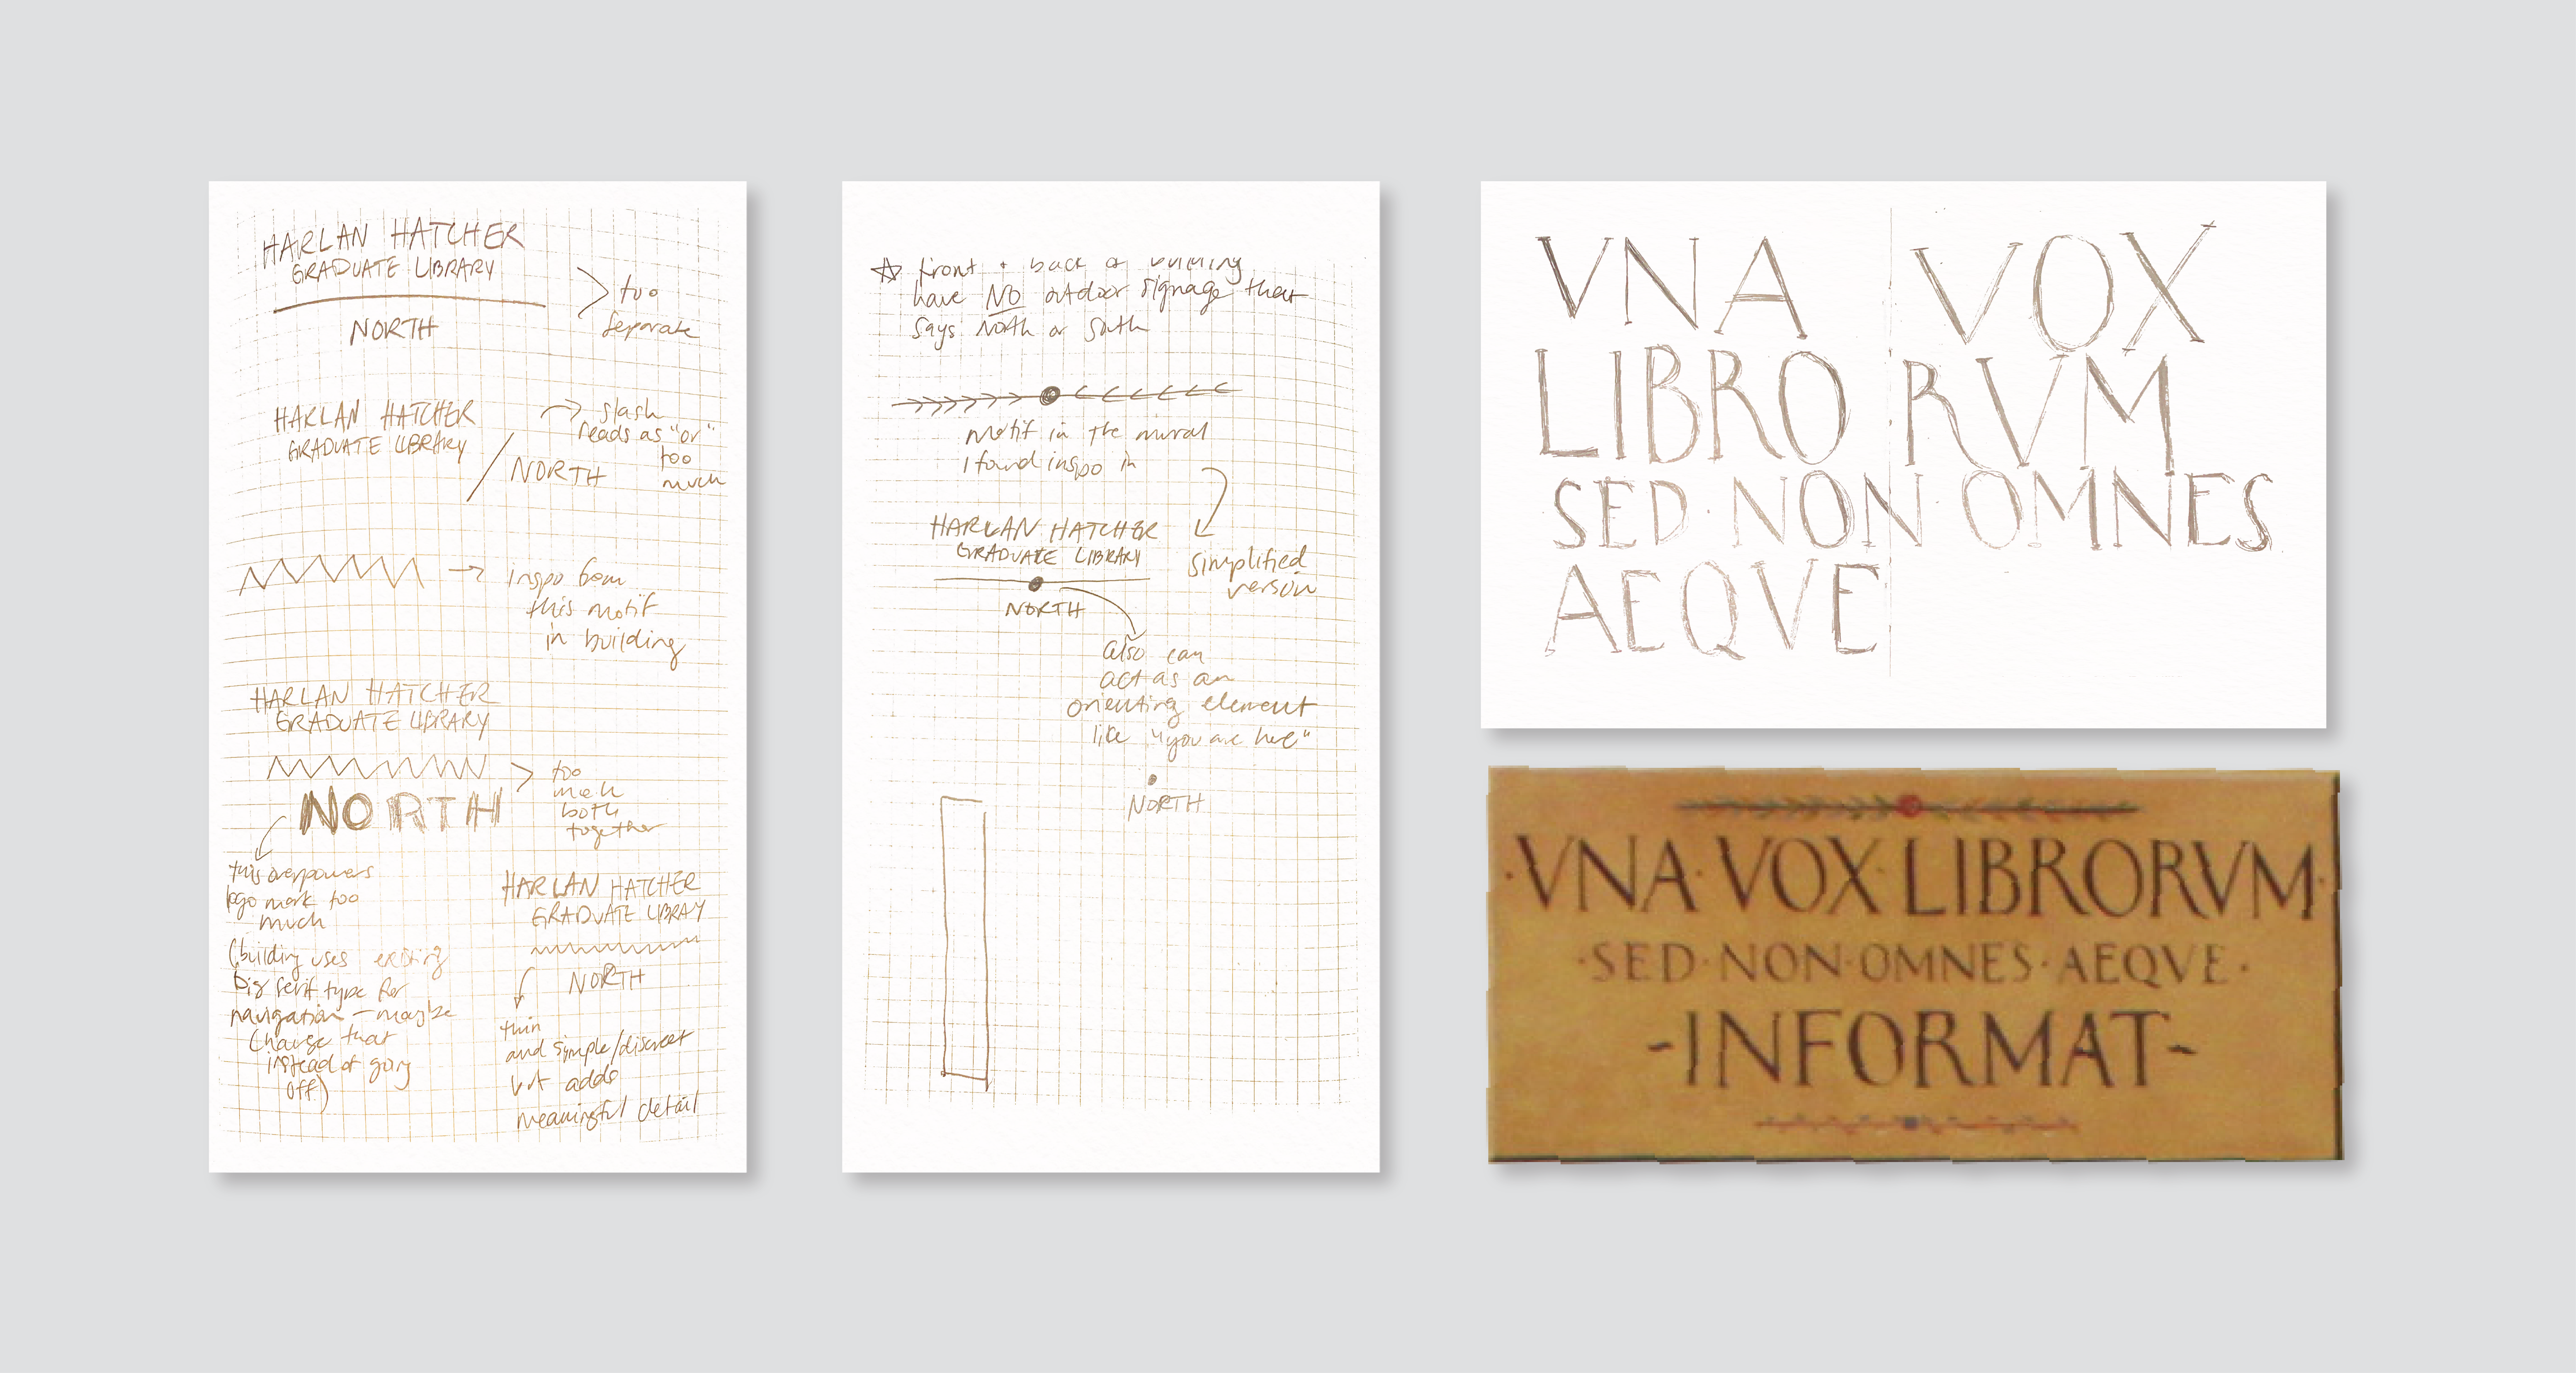 HARLAN HATCHER
GRADUATE LIBRARY
NORTH
too
separate
HARLAN HATCHER
GRADUATE LIBRARY
NORTH
slash
reads as "or"
too
much
inspo from
this motif
in building
HARLAN HATCHER
GRADUATE LIBRARY
NORTH
too
much
both
together
this overpowers
logo mark too
much
(building uses existing
big serif type for
navigation - maybe
change that
instead of going
off)
HARLAN HATCHER
GRADUATE LIBRAY
NORTH
thin
and symple/discreet
but adds
meaningful detail
front + back of building
have NO outdoor signage that
says North or South
motif in the mural
I found inspo in
HARLAN HATCHER
GRADUATE LIBRARY
NORTH
simplified
version
also can
act as an
orienting element
like "you are here"
NORTH
VNA VOX
LIBRO RVM
SED · NON OMNES
AEQVE
·VNA·VOX·LIBRORVM·
·SED·NON·OMNES·AEQVE·
-INFORMAT-